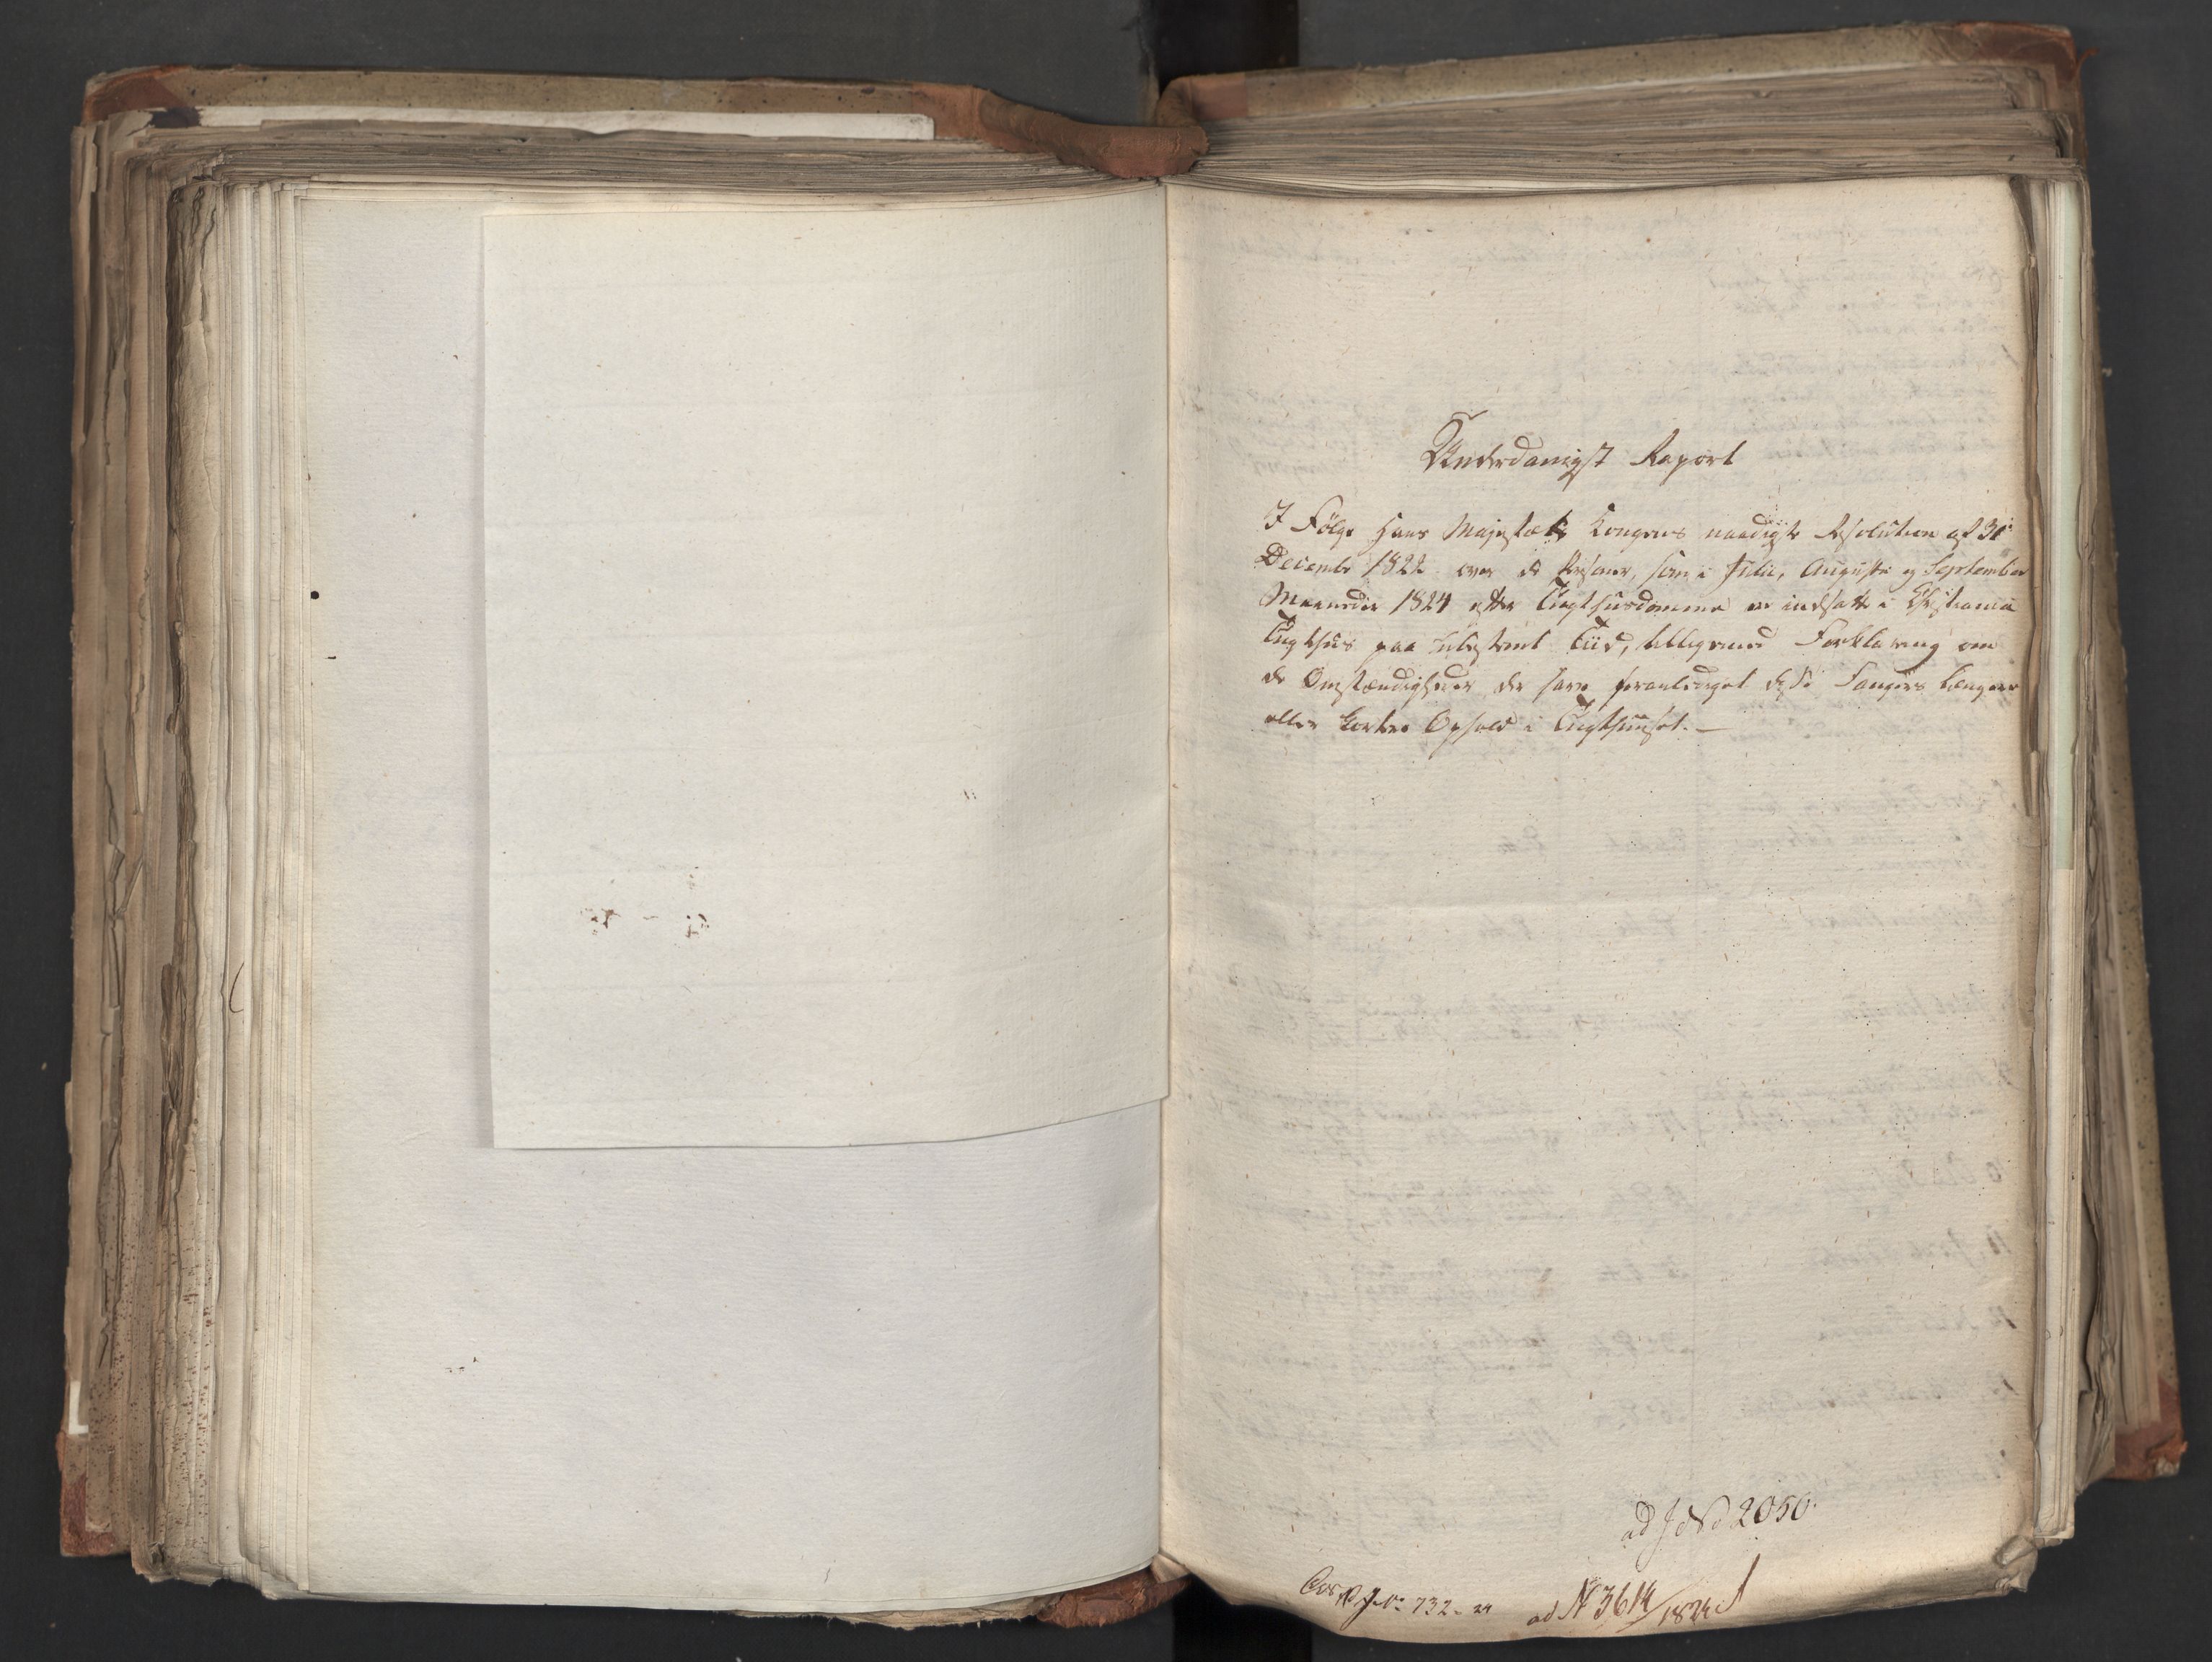 Underdanigst Raport
I Følge Hans Majestæts Kongens naadigste Resolution af 31
Decembr 1822 over de Personer, som i Julii, Augusti og September
Maaneder 1824 efter Tugthusdomme ere indsatte i Christiania
Tugthus paa ubestemt Tiid, tilligemed Forklaring om
de Omstændigheder der have foranlediget disse Fangers længere
eller kortere Ophold i Tugthuuset. —
ad J No 2050.
ad N 3614/1824
732. 24